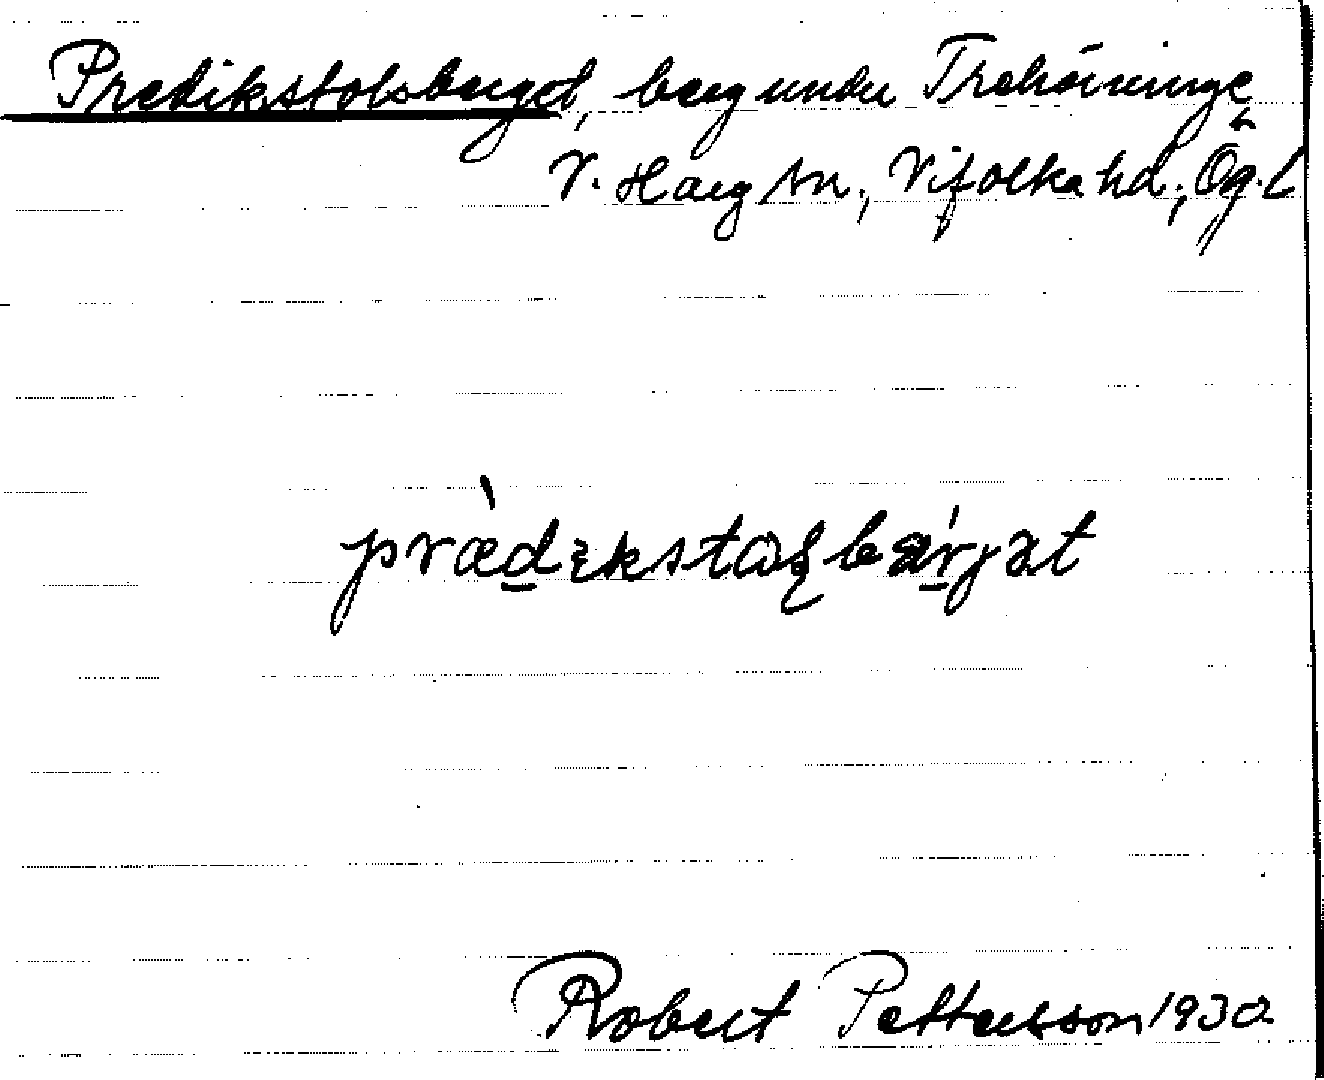 Predikstolsberget, berg under Trehörninge
V. Harg sn., Vifolka hd., Ög. L
prædɩkstωlbærjət
Robert Pettersson 1930